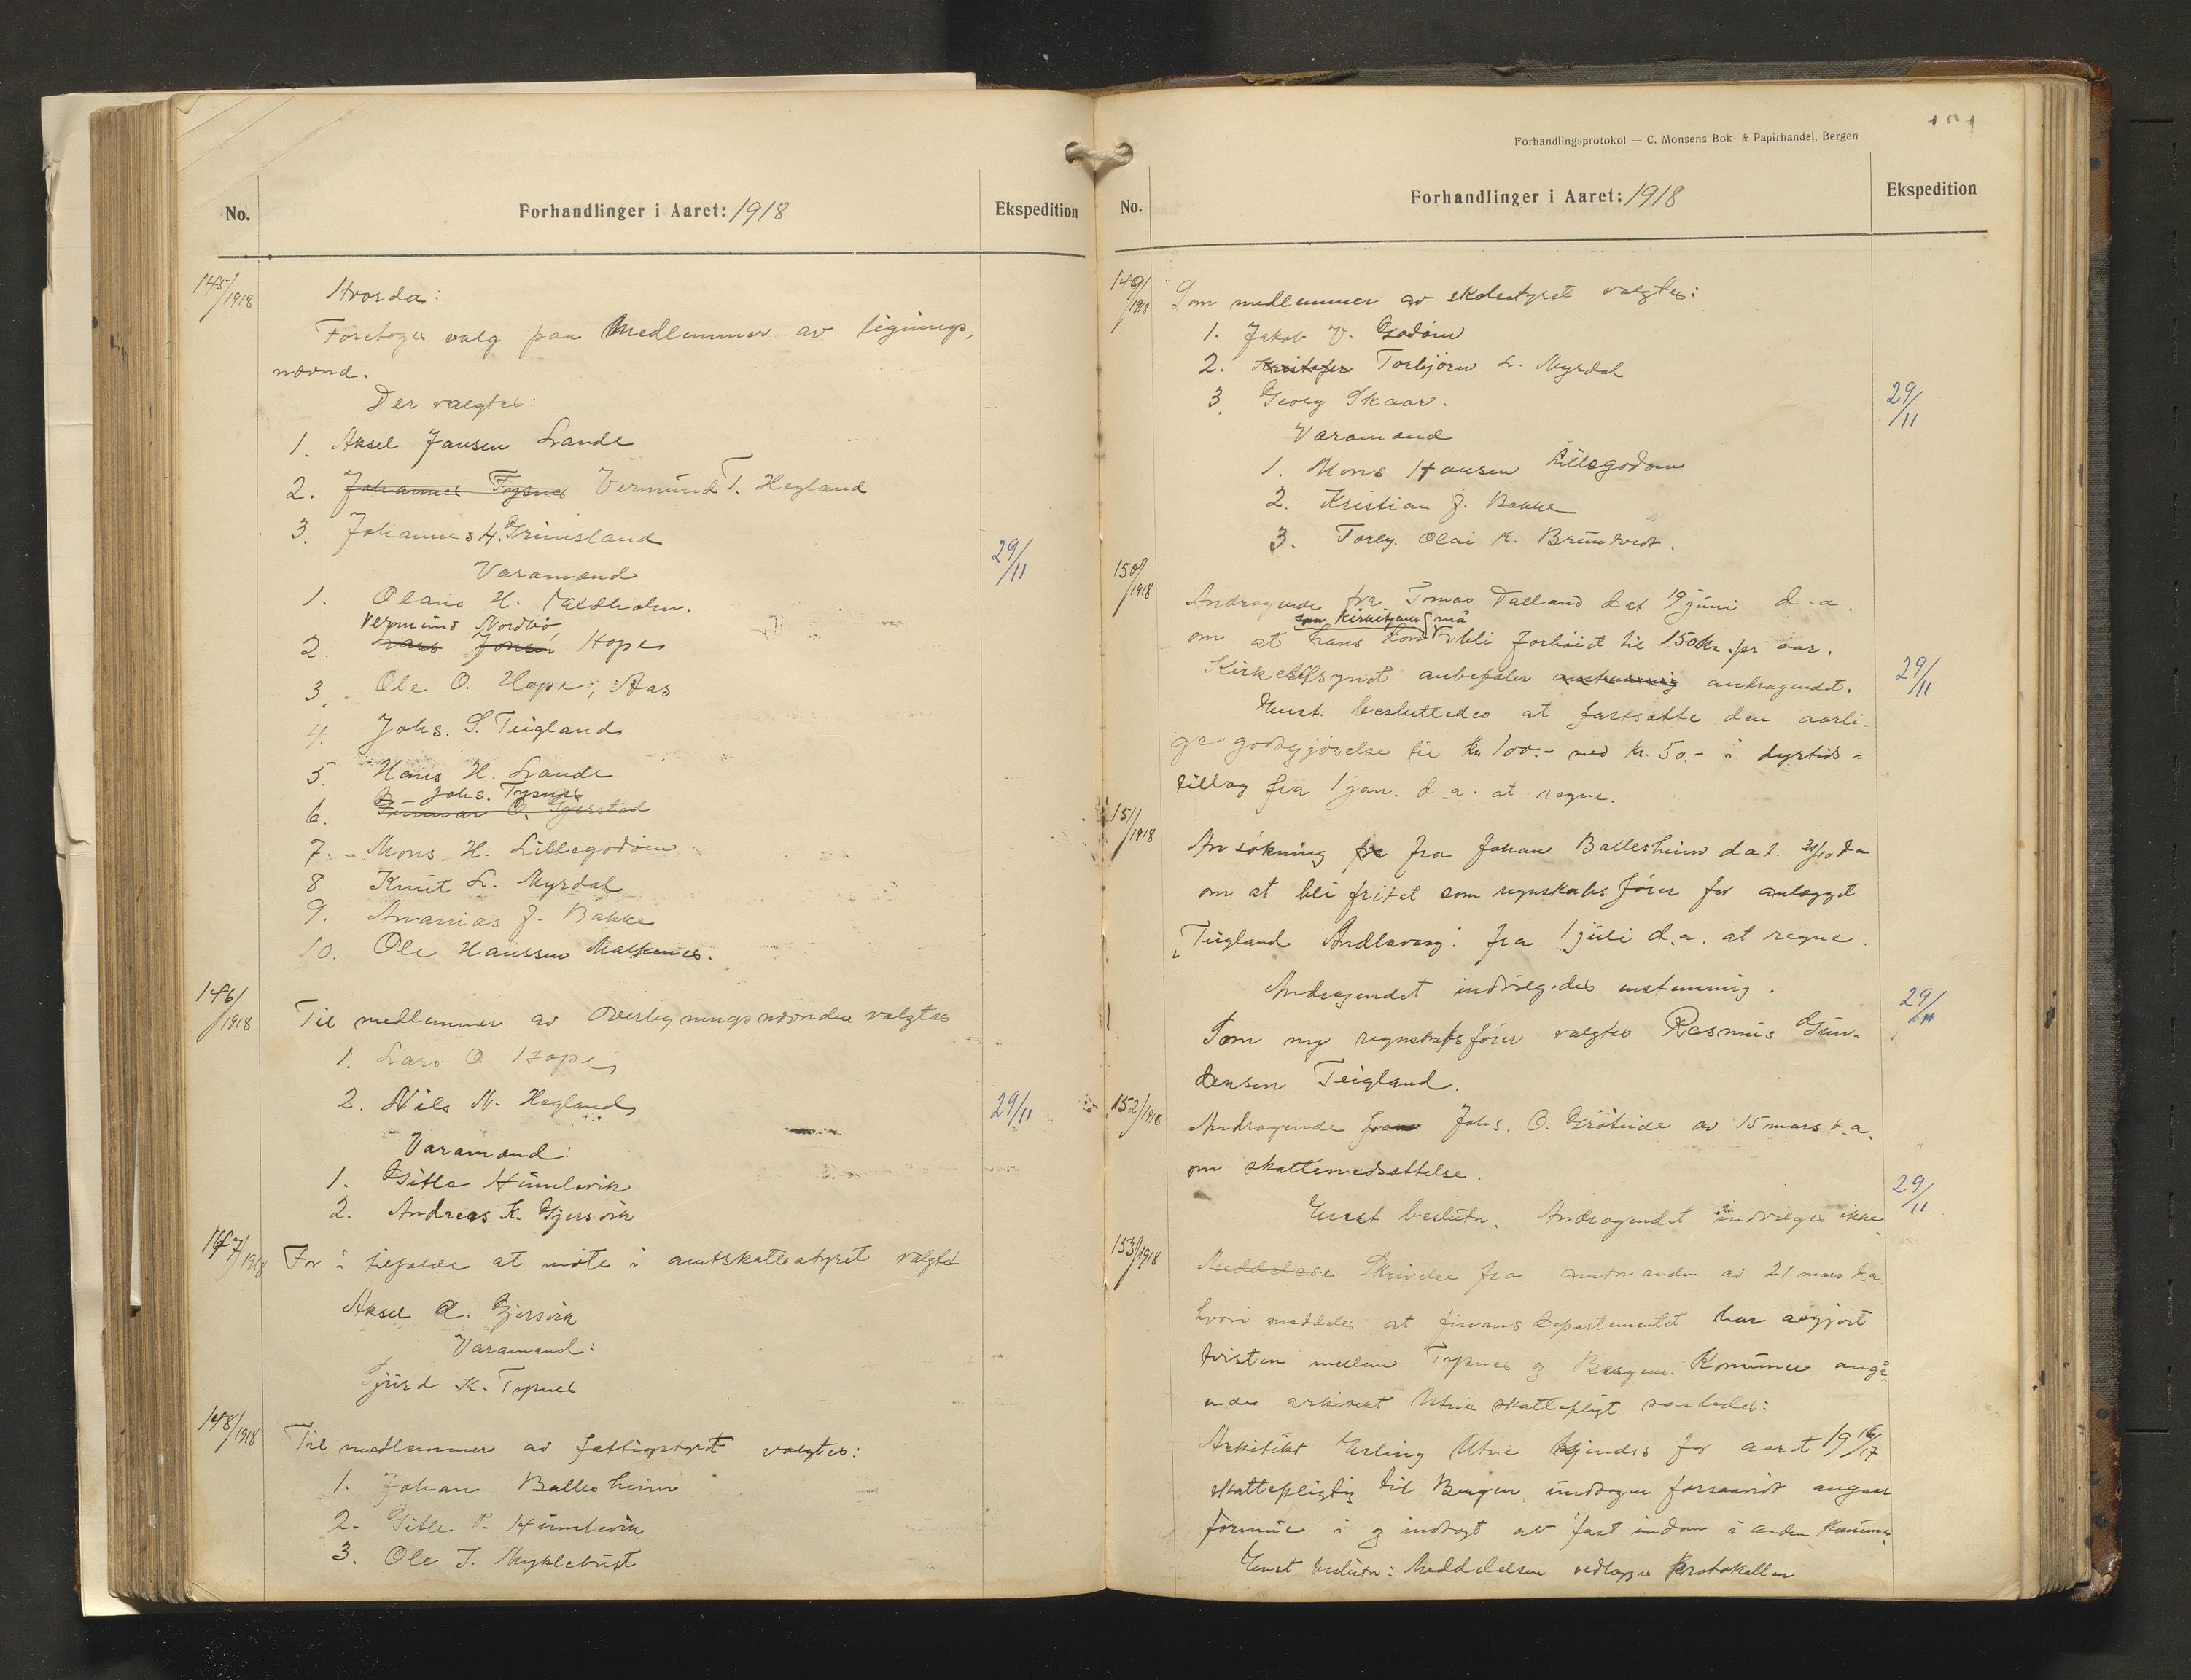 No.
Forhandlinger i Aaret: 1918
Ekspedition
145/1918
Hvorda:
Foretoges valg paa Medlemmer av lignings,
nævnd.
Der valgtes:
1. Aksel Jansen Lande
2. Johannes Tysnes Vermund T. Hegland
3. Johannes H. Grimsland
29/11
Varamænd
1. Olaus H. Meldholm.
Vermund Nordbö
2. Lars Jonsen Hope
3. Ole O. Hope, Aas
4. Johs. S. Teigland
5. Hans H. Lande
Johs. Tysnes
6. Gunnar O. Gjerstad
7. Mons H. Lillegodöim
8 Knut L. Myrdal
9. Ananias J. Bakke
10. Ole Hanssen Malkenes.
146/1918
Til medlemmer av overligningsnævnden valgtes
1. Lars O. Hope
2. Nils N. Hegland
29/11
Varamænd:
1. Gitle Humlevik
2. Andreas K. Gjersvik
147/1918
For i tilfælde at möte i amtskattestyret valgtes
Aksel A. Gjersvik
Varamænd:
Sjurd K. Tysnes
148/1918
Til medlemmer av fattigstyret valgtes:
1. Johan Ballesheim
2. Gitle P. Humlevik
3. Ole J. Myklebust
101
Forhandlingsprotokol — C. Monsens Bok- & Papirhandel, Bergen
No.
Forhandlinger i Aaret: 1918
Ekspedition
149/1918
Som medlemmer av skolestyret valgtes:
1. Jakob V. Godöim
2. Kristofer Torbjörn L. Myrdal
3. Georg Skaar.
29/11
Varamænd
1. Mons Hansen Lillegodöim
2. Kristian J. Bakke
3. Torlg. Olai K. Bruntveit.
150/1918
Andragende fra Tomas Dalland dat 19 juni d.a.
som kirketjener må
om at hans lön bli forhöiet til 150 kr. pr aar.
Kirketilsynet anbefaler enstemmig andragendet.
29/11
Enst. besluttedes at fastsætte den aarli-
ge godtgjörelse til kr 100.- med kr. 50.- i dyrtids-
tillæg fra 1 jan. d.a. at regne.
151/1918
Ansökning fra fra Johan Ballesheim dat. 31/10 d.a
om at bli fritat som regnskabsförer for anlægget
"Teigland Andlavaag" fra 1 juli d.a. at regne.
Andragendet indvilgedes enstemmig.
29/11
Som ny regnskabsförer valgtes Rasmus Gun-
dersen Teigland.
152/1918
Andragende fra Johs. O. Gröteide av 15 mars d.a.
om skattenedsættelse.
29/11
Enst beslutn. Andragendet indvilges ikke.
153/1918
Meddelelse Skrivelse fra amtmanden av 21 mars d.a.
hvori meddeles at finansdepartementet har avgjort
tvisten mellem Tysnes og Bergens Komuner angå-
ende arkitekt Utnes skattepligt saaledes:
Arkitekt Erling Utne kjendes for aaret 1916/17
skattepligtig til Bergen undtagen forsaavidt angaar
formue i og indtægt av fast eiendom i anden Komune.
Enst beslutn: Meddelelsen vedlægges protokollen